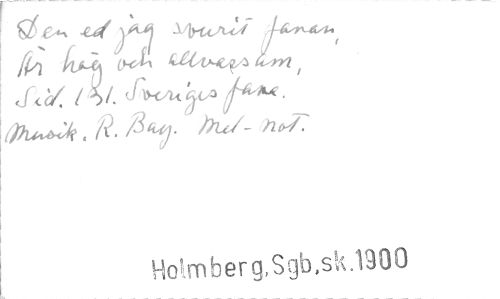 Den ed jag svurit fanan,
Är hög och allvarsam,
Sid. 131. Sveriges fana.
Musik. R. Bay. Mel-not.
Holmberg,Sgb,sk.1900